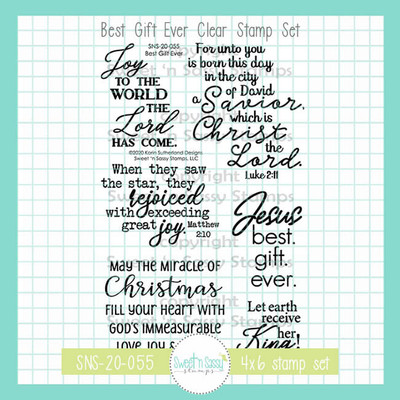 Best Gift Ever Clear Stamp Set
SNS-20-055
Best Gift Ever
Joy
TO THE
WORLD
THE
Lord
HAS COME.
©2020 Karin Sutherland Designs
Sweet 'n Sassy Stamps, LLC
For unto you
is born this day
in the city
of David
a Savior,
which is
Christ
the
Lord.
Luke 2:11
When they saw
the star, they
rejoiced
with exceeding
great joy.
Matthew
2:10
Jesus
best.
gift.
ever.
MAY THE MIRACLE OF
Christmas
FILL YOUR HEART WITH
GOD'S IMMEASURABLE
LOVE, JOY &
Let earth
receive
her
King!
copyright
Sweet 'n Sassy Stamps
copyright
Sweet 'n Sassy Stamps
SNS-20-055
Sweet 'n Sassy
stamps
4x6 stamp set